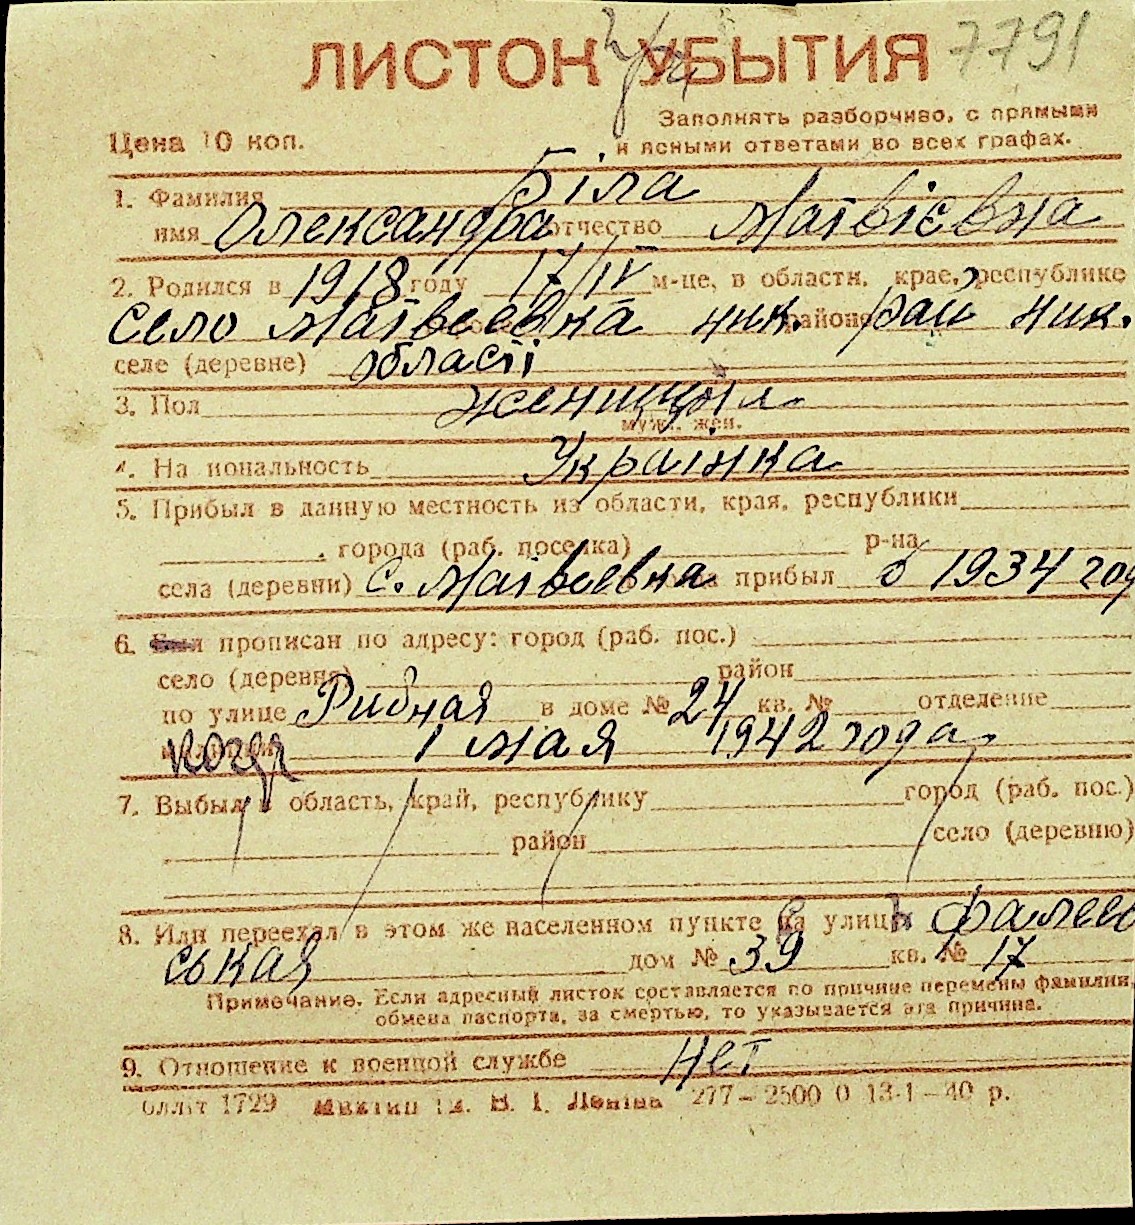 7791
ЛИСТОК УБЫТИЯ
Заполнять разборчиво, с прямыми
Цена 10 коп.
и ясными ответами во всех графах.
1. Фамилия Біла
имя Олександра отчество Матвієвна
2. Родился в 1918 году 17/IV м-це, в области, крае, республике
село Матвеевка ник. районе рай ник.
селе (деревне) області
3. Пол женщина
муж., жен.
4. Национальность Українка
5. Прибыл в данную местность из области, края, республики
города (раб. поселка) р-на
села (деревни) с. Матвеевка прибыл в 1934 год
6. Был прописан по адресу: город (раб. пос.)
село (деревня) район
по улице Рибная в доме № 24 кв. № отделение
когда 1 мая 1942 года
7. Выбыл в область, край, республику город (раб. пос.)
район село (деревню)
8. Или переехал в этом же населенном пункте на улицу Фалеев
ськая дом № 39 кв. № 17
Примечание. Если адресный листок составляется по причине перемены фамилии,
обмена паспорта, за смертью, то указывается эта причина.
9. Отношение к военной службе Нет
1729 В. І. Леніна 277—2500 0 13-1—40 р.